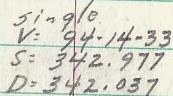 single
V= 94-14-33
S= 342.977
D= 342.037